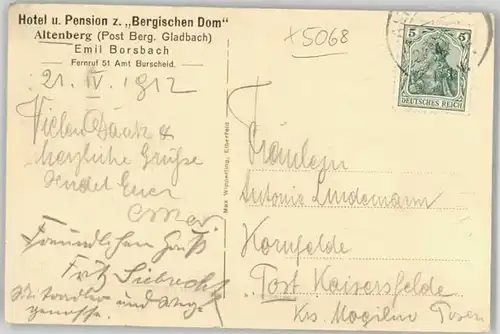 Hotel u. Pension z. „Bergischen Dom"
Altenberg (Post Berg. Gladbach)
Emil Borsbach
Fernruf 51 Amt Burscheid.
x 5068
5 5
DEUTSCHES REICH
21. IV. 1912
Vielen Dank &
herzliche Grüße
sendet Euer
Freundlichen Gruß
Fritz Siebrecht
und
Max Wipperling, Elberfeld
Fräulein
Antonie Lindemann
Kornfelde
Post Kaisersfelde
Krs. Mogilno Posen